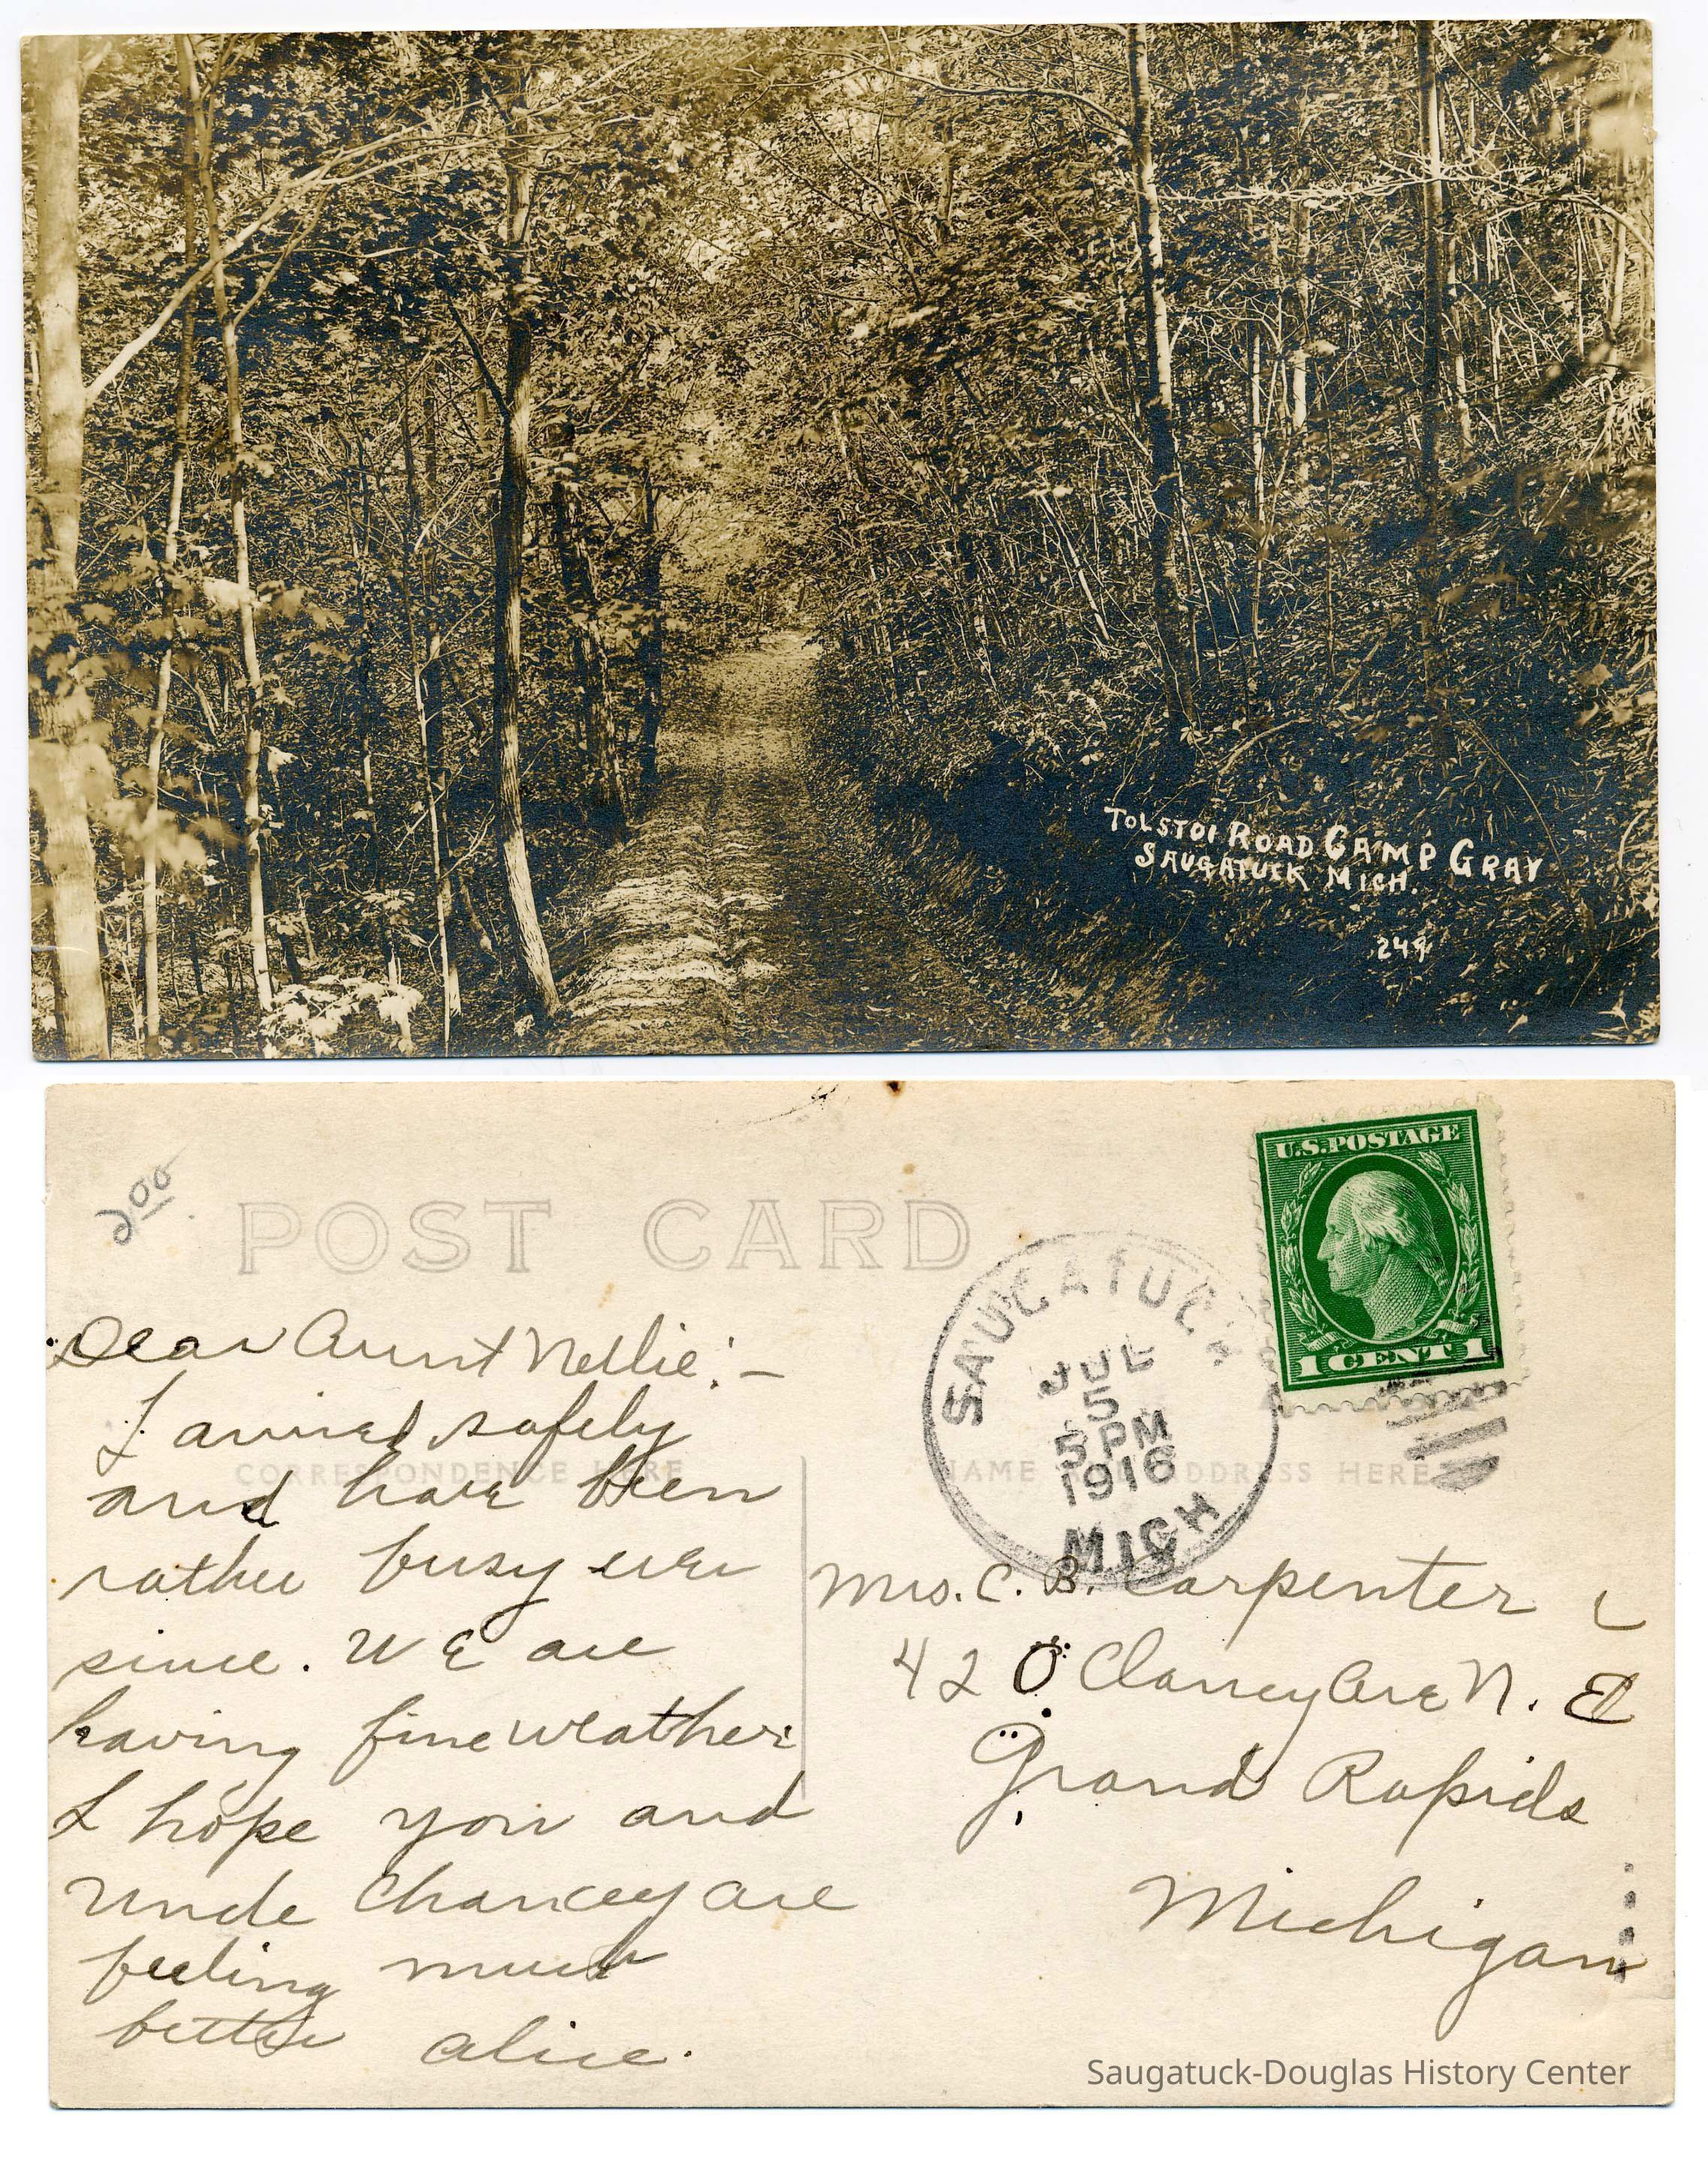 TOLSTOI ROAD CAMP GRAY
SAUGATUCK MICH.
249
2 00
POST CARD
U.S. POSTAGE
1 CENT 1
SAUGATUCK
JUL
5
5 PM
1916
MICH
CORRESPONDENCE HERE
NAME ADDRESS HERE
Dear Aunt Nellie:—
I arrived safely
and have been
rather busy ever
since. We are
having fine weather
I hope you and
Uncle Chancey are
feeling much
better Alice.
Mrs. C. B. Carpenter
420 Clancy Ave N. E
Grand Rapids
Michigan
Saugatuck-Douglas History Center